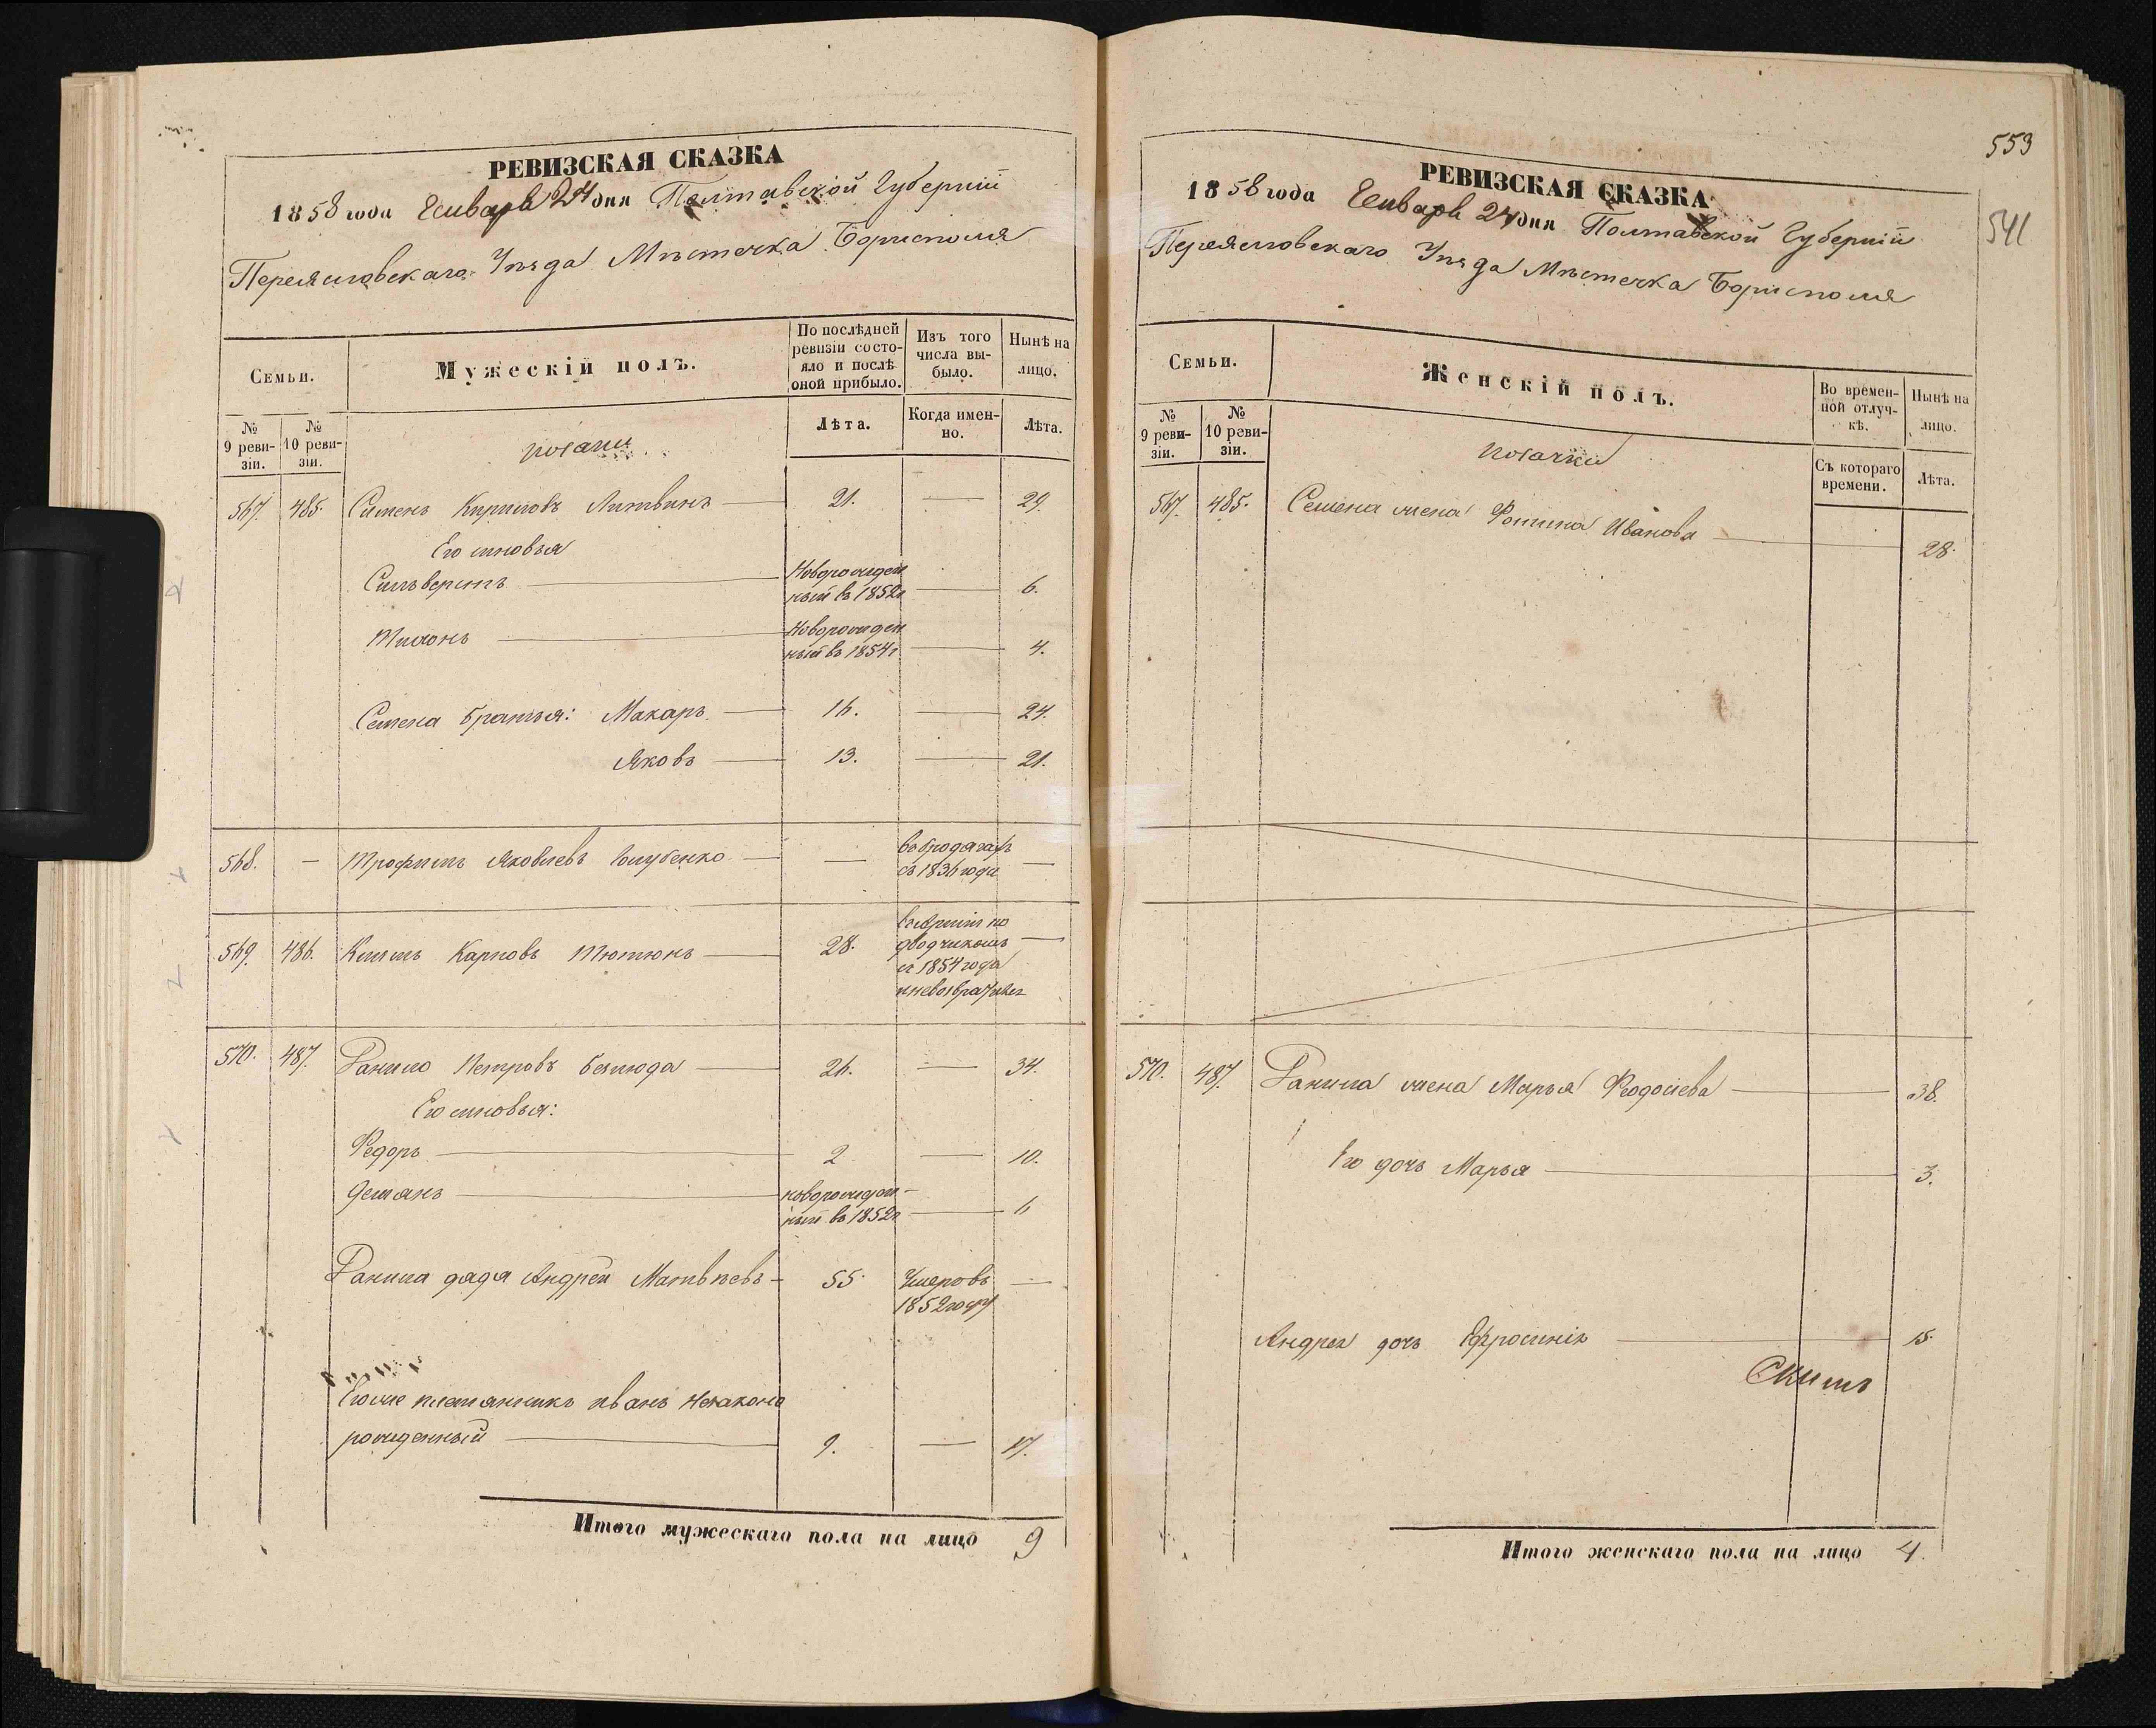 РЕВИЗСКАЯ СКАЗКА
1858 года Генваря 24 дня Полтавской Губернии
Переясловскаго Уѣзда Мѣстечка Борисполя
Семьи.
Мужескій полъ.
По послѣдней ревизіи состо-
яло и послѣ
оной прибыло.
Изъ того
числа вы-
было.
Нынѣ на
лицо.
№
9 реви-
зіи.
№
10 реви-
зіи.
козаки
Лѣта.
Когда имен-
но.
Лѣта.
567. 485. Семенъ Кириловъ Литвинъ 21. 29.
Его сыновья
Сильверстъ Новорожден
ный въ 1852г 6.
Тихонъ Новорожден
ный въ 1854г 4.
Семена братья: Макаръ 16. 24.
Яковъ 13. 21.
568. Трофимъ Яковлевъ въ бродягахъ
съ 1836 года
569. 486. Климъ Карповъ Тютюнъ 28.
съ 1854 года
и невозвратился
570. 487. Данило Петровъ 26. 34.
Его сыновья:
Федоръ 2 10.
Демьянъ новорожден-
ный въ 1852г 6
Данила дядя Андрей Матвѣевъ 55. Умеръ въ
1852 году
Его же племянникъ Иванъ незаконо
рожденный 9. 17.
Итого мужескаго пола на лицо 9
553
541
РЕВИЗСКАЯ СКАЗКА
1858 года Генваря 24 дня Полтавской Губернии
Переясловскаго Уѣзда Мѣстечка Борисполя
Семьи.
Женскій полъ.
Во времен-
ной отлуч-
кѣ.
Нынѣ на
лицо.
№
9 реви-
зіи.
№
10 реви-
зіи.
козачки
Съ котораго
времени.
Лѣта.
567. 485. Семена жена Фотина Иванова 28.
570. 487. Данила жена Марья Феодосіева 38.
Его дочь Марья 3.
Андрея дочь Ефросинія 15.
Итого женскаго пола на лицо 4.